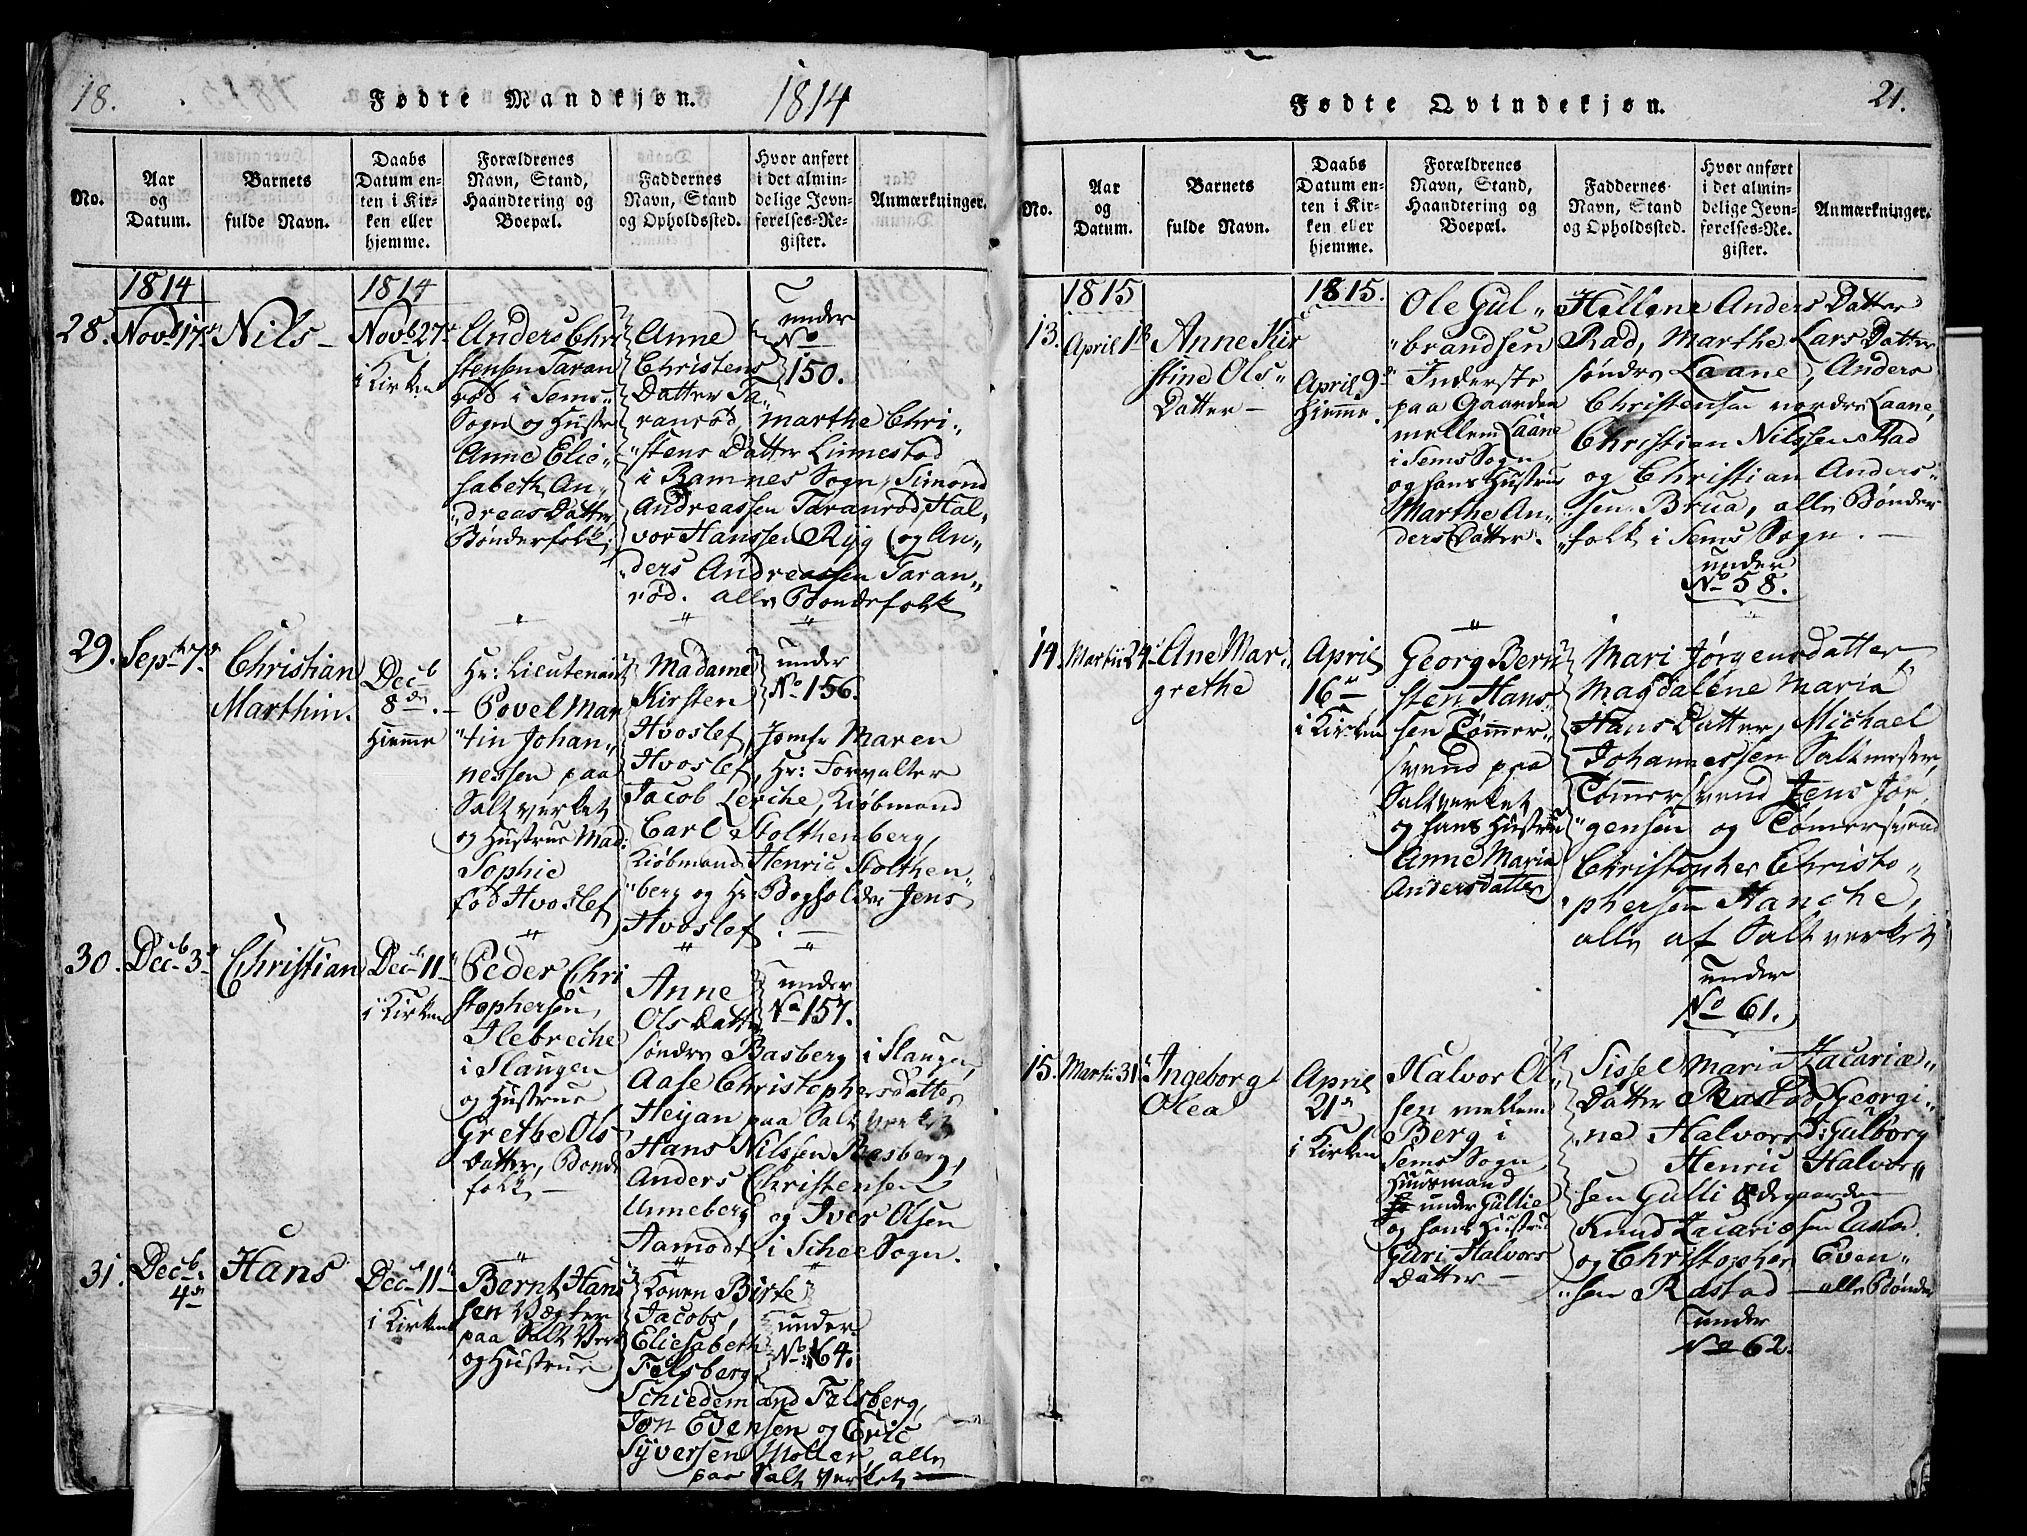 18.
Fødte Mandkjøn.
1814
No.
Aar
og
Datum.
Barnets
fulde Navn.
Daabs
Datum en-
ten i Kir-
ken eller
hjemme.
Forældrenes
Navn, Stand,
Haandtering og
Boepæl.
Faddernes
Navn, Stand
og Opholdssted.
Hvor anført
i det almin-
delige Jevn-
førelses-Re-
gister.
Anmærkninger.
1814
1814
28.
Novb 17de
Nils -
Novb 27de
i Kirken
Anders Chri
stensen Taran
rød i Sems
Sogn og Hustr
Anne Elie-
sabeth An-
dreas Datter
Bønderfolk
Anne
Christens
Datter Ta-
ranrød, Marthe Chri-
stens Datter Linnestad
i Ramnes Sogn, Simond
Andreassen Taranrød, Hal-
vor Hanssen Ryg og An-
ders Andreassen Taran-
rød. alle Bondefolk
under
No
150.
29.
Septr 7de
Christian
Marthin.
Decb
8de.
Hiemme
Hr: Lieutenant
Povel Mar
tin Johan-
nessen paa
Saltverket
og Hustrue Mad:
Sophie
fød Hvoslef
Madame
Kirsten
Hvoslef, Jomfr Maren
Hvoslef, Hr: Forvalter
Jacob Lerche, Kiøbmand
Carl Stolthenberg,
Kiøbmand Henric Stolthen-
berg og Hr Bogholder Jens
Hvoslef.
under
No 156.
30.
Decb 3de
Christian
Dec 11te
i Kirken
Peder Chri
stophersen,
Ilebreche
i Slaugen
og Hustrue
Grethe Ols
Datter, Bonde
folk -
Anne
Ols Datter
søndre Basberg i Slaugen,
Aase Christophersdatter
Heyan paa Salt Verket
Hans Nilssen Basberg,
Anders Christensen
Unneberg og Iver Olsen
Aamodt i Schee Sogn.
under
No 157.
31.
Decb.
4de
Hans
Dec 11te
i Kirken
Bernt Hans
sen Vægter
paa Salt Verk
og Hustrue
Konen Birte
Jacobs,
Eliesabeth
Felsberg
Schiedem and Felsberg,
Jon Evensen og Eric
Syversen Møller, alle
paa Salt Verket
under
No: 164.
Fødte Qvindekjøn.
21.
No.
Aar
og
Datum.
Barnets
fulde Navn.
Daabs
Datum en-
ten i Kir-
ken eller
hjemme.
Forældrenes
Navn, Stand,
Haandtering og
Boepæl.
Faddernes
Navn, Stand
og Opholdssted.
Hvor anført
i det almin-
delige Jevn-
førelses-Re-
gister.
Anmærkninger.
1815
1815.
13.
April 1st
Anne Kir
stine Ols
Datter -
April 9de
Hiemme.
Ole Gul-
brandsen
Inderste
paa Gaarden
mellem Laane
i Sems Sogn
og hans Hustrue
Marthe An-
ders Datter.
Hellene Anders Datter
Rad, Marthe Lars Datter
søndre Laane, Anders
Christensen nordre Laane,
Christian Nilssen Rad
og Christian Anders-
sen Brua, alle Bønder
folk i Sems Sogn. -
under
No 58.
14.
Martii 24
Ane Mar-
grethe
April
16de
i Kirken
Georg Bern
sten Hans
sen Tømmer-
svend paa
Saltverket
og hans Hustrue
Anne Maria
Andersdatter
Mari Jørgensdatter
Magdalene Maria
Hans Datter, Michael
Johannessen Saltmester,
Tømmersvend Jens Jør
gensen og Tømersvend
Christopher Christo-
phersen Hanche,
alle af Saltverket
under
No 61.
15.
Martii 31
Ingeborg
Olea
April
21de
i Kirken
Halvor Ol-
sen mellem
Berg i
Sems Sogn
Huusmand
under Gullie
og hans Hustrue
Guri Halvors
Datter -
Sissel Maria Zacariæ-
Datter Rastad, Georgi-
ne Halvors D: Gulborg
Henric Halvor
sen Gulli Ødegaarden
Knud Zacariæsen
og Christopher Even-
sen Rastad - alle Bønder
under
No 62.